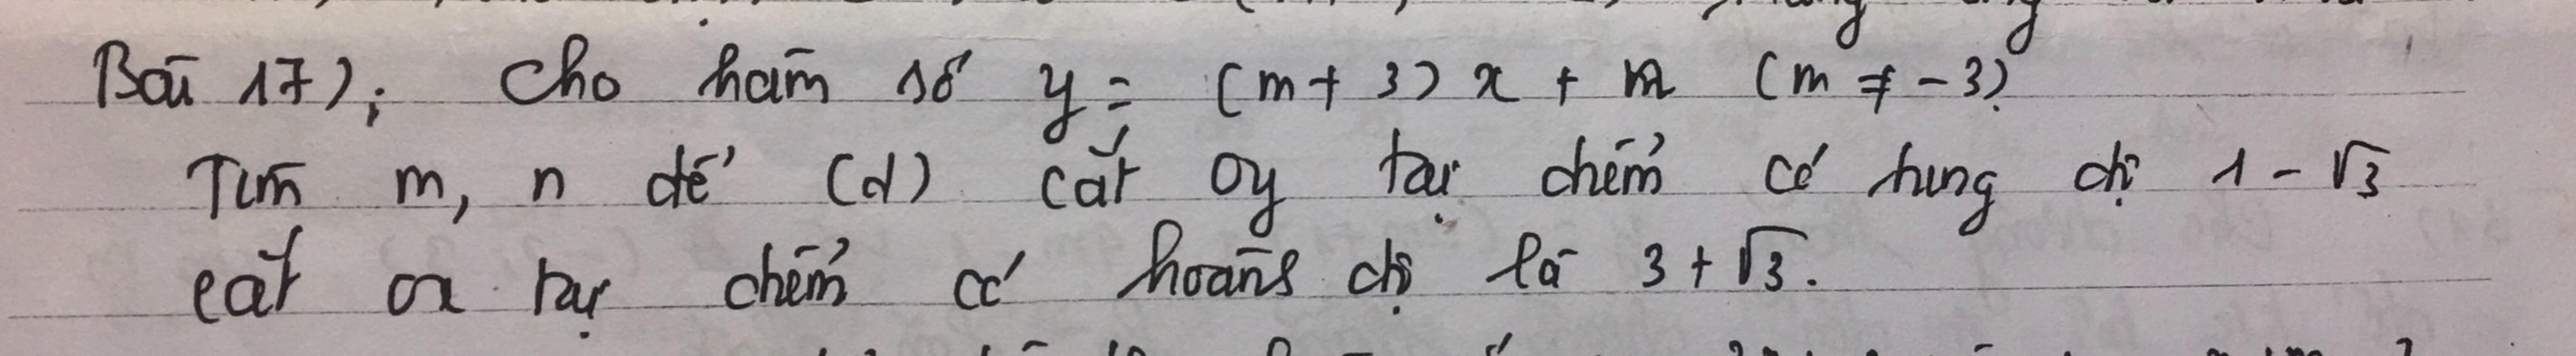 Bài 17); Cho hàm số y = (m + 3) x + n (m ≠ -3)
Tìm m, n để (d) cắt oy tại điểm có tung độ 1 - √3
cắt ox tại điểm có hoành độ là 3 + √3.